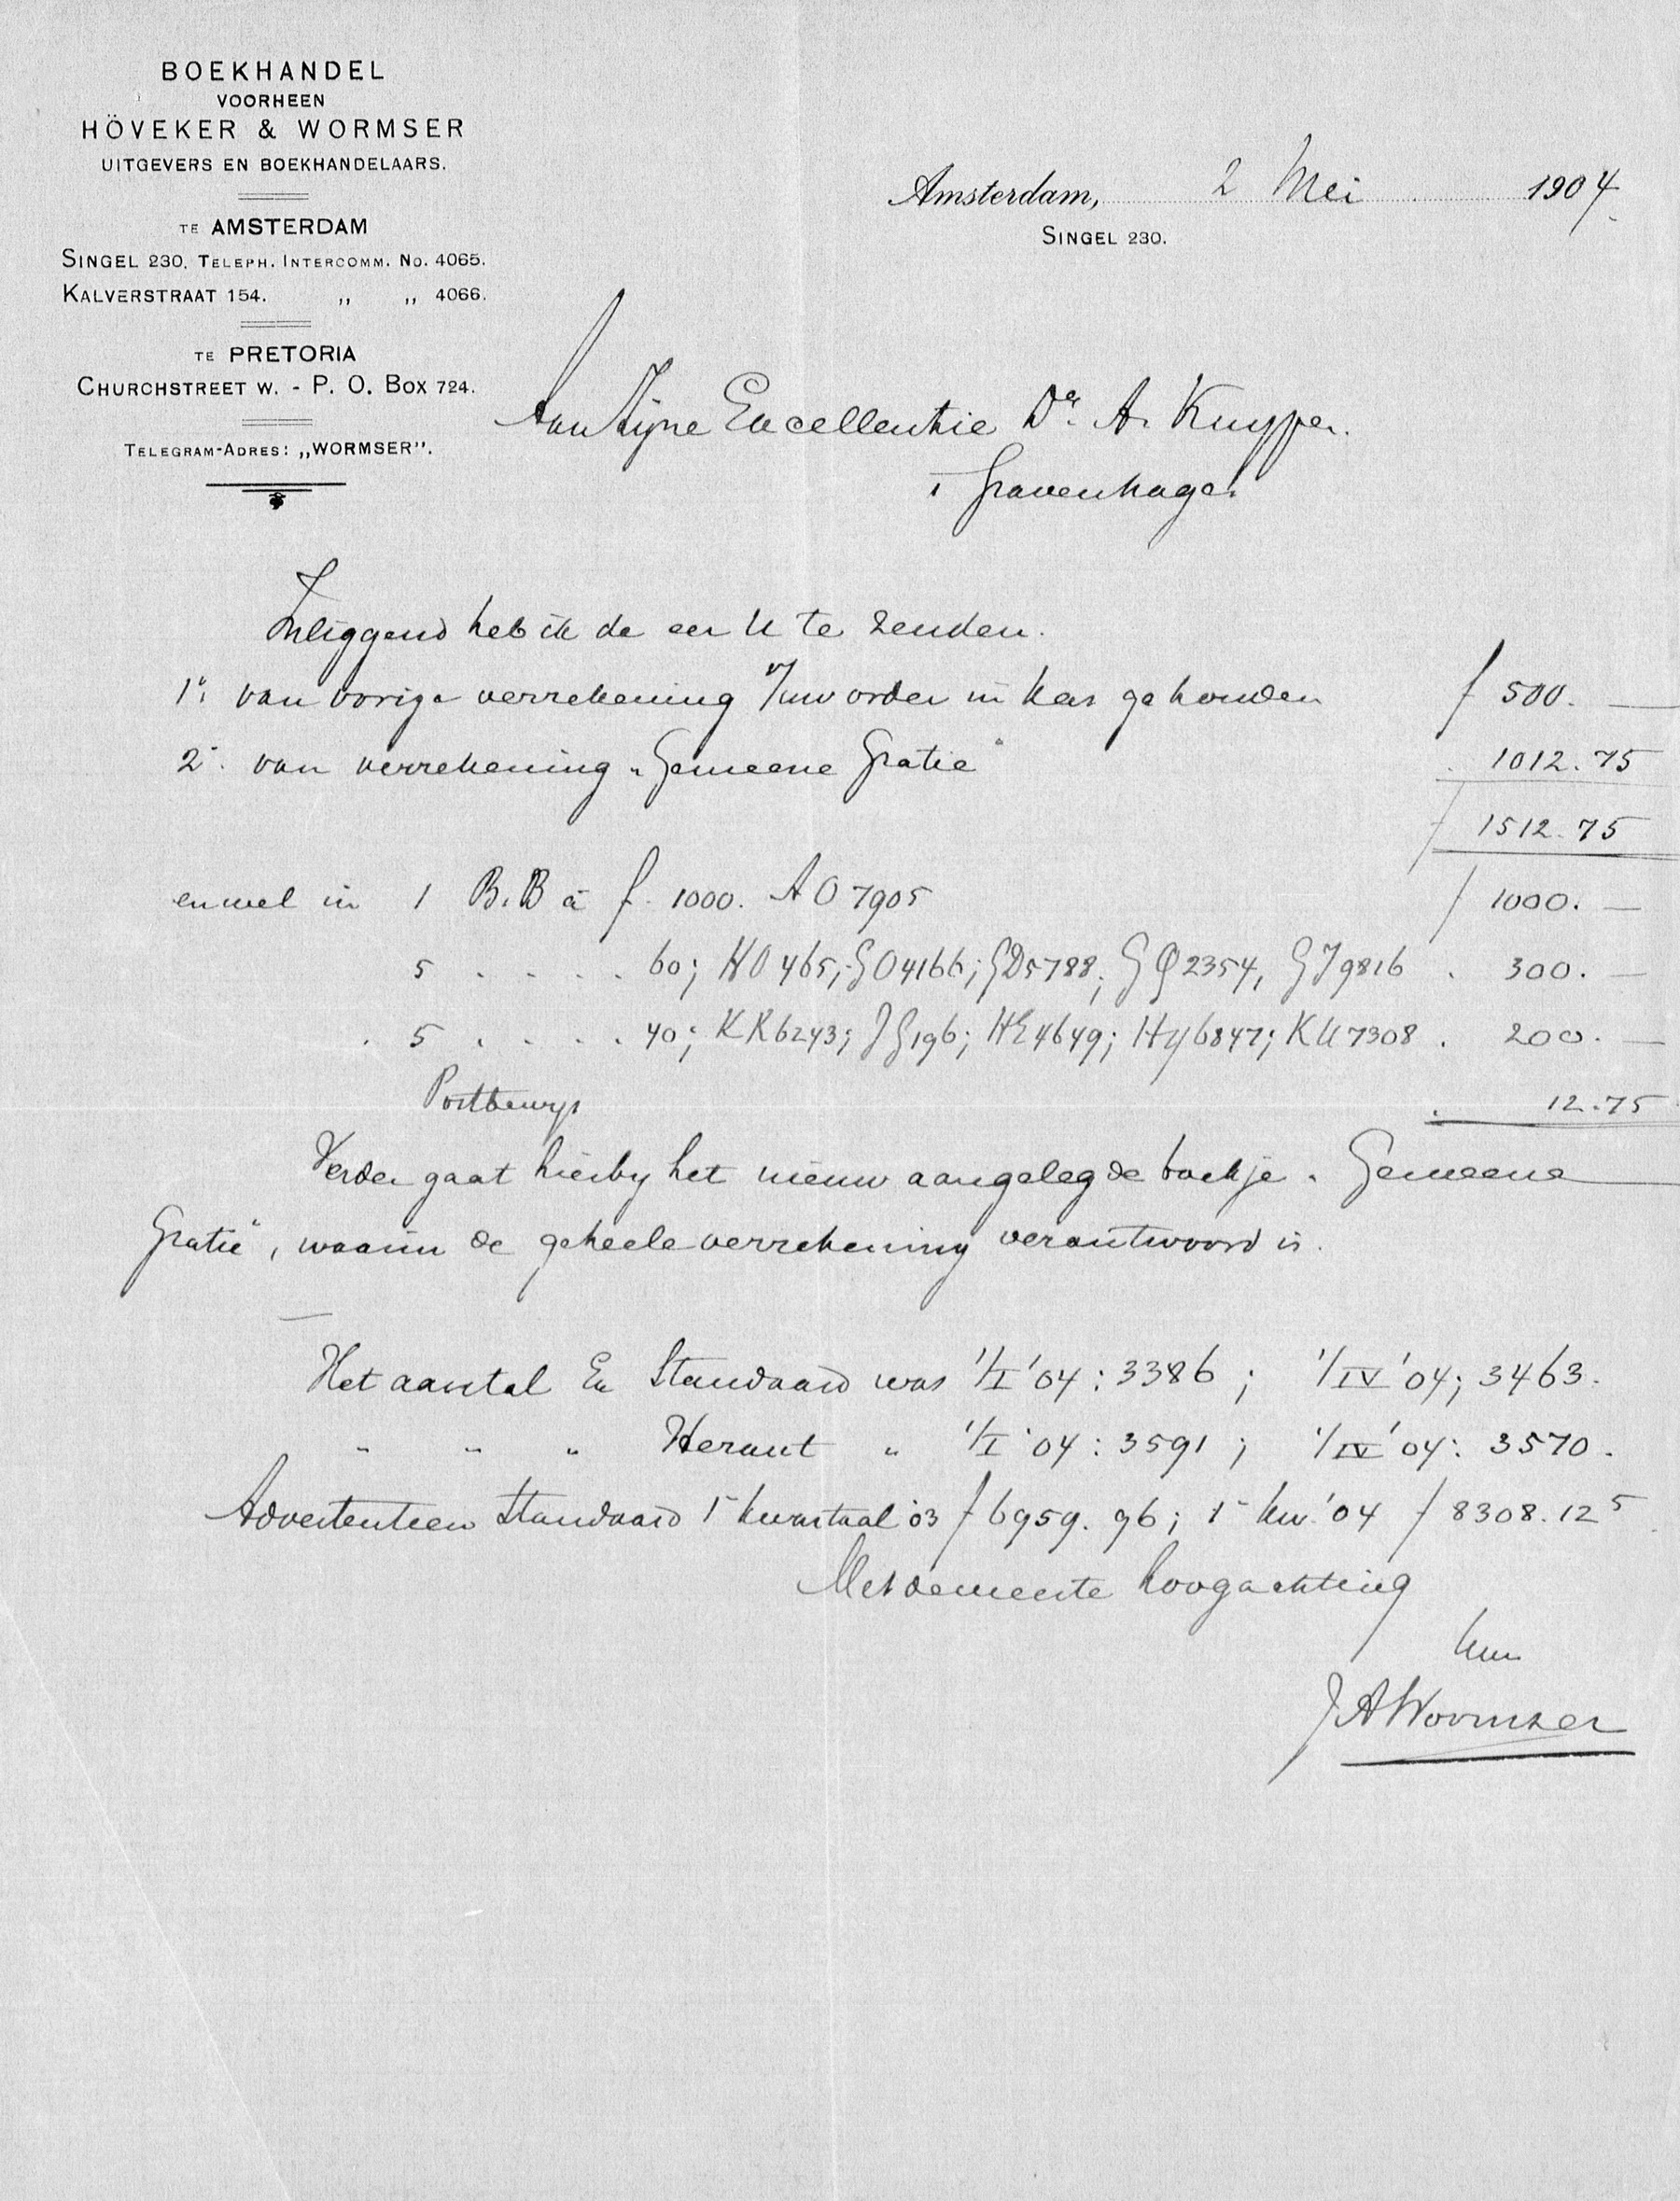 BOEKHANDEL
VOORHEEN
HÖVEKER & WORMSER
UITGEVERS EN BOEKHANDELAARS.
TE AMSTERDAM
SINGEL 230, TELEPH. INTERCOMM. No. 4065.
KALVERSTRAAT 154. ,, ,, 4066.
TE PRETORIA
CHURCHSTREET W. - P. O. BOX 724.
TELEGRAM-ADRES: ,,WORMSER".
Amsterdam, 2 Mei 1904.
SINGEL 230.
Aan Zijne Excellentie Dr. A. Kuyper.
's Gravenhage.
Inliggend heb ik de eer U te zenden.
1°. van vorige verrekening o/uw order in kas gehouden f 500. —
2°. van verrekening "Gemeene Gratie" . 1012.75
f 1512.75
en wel in 1 B.B à f. 1000. AO 7905 f 1000. —
5 . . . . . 60; HO 465; GO 4166; GD 5788; GQ 2354, GJ 9816 . 300. —
5 . . . . . 40; KR 6243; JG 196; HE 4649; HY 6847; KU 7308 . 200. —
Postbewijs . 12.75
Verder gaat hierbij het nieuw aangelegde boekje "Gemeene
Gratie", waarin de geheele verrekening verantwoord is.
Het aantal Ex Standaard was 1/I '04: 3386; 1/IV '04; 3463.
" " " Heraut " 1/I '04: 3591; 1/IV '04: 3570.
Advertentien Standaard 1e kwartaal '03 f 6959.96; 1e kw. '04 f 8308.12 5
Met de meeste hoogachting
Uw
J A Wormser